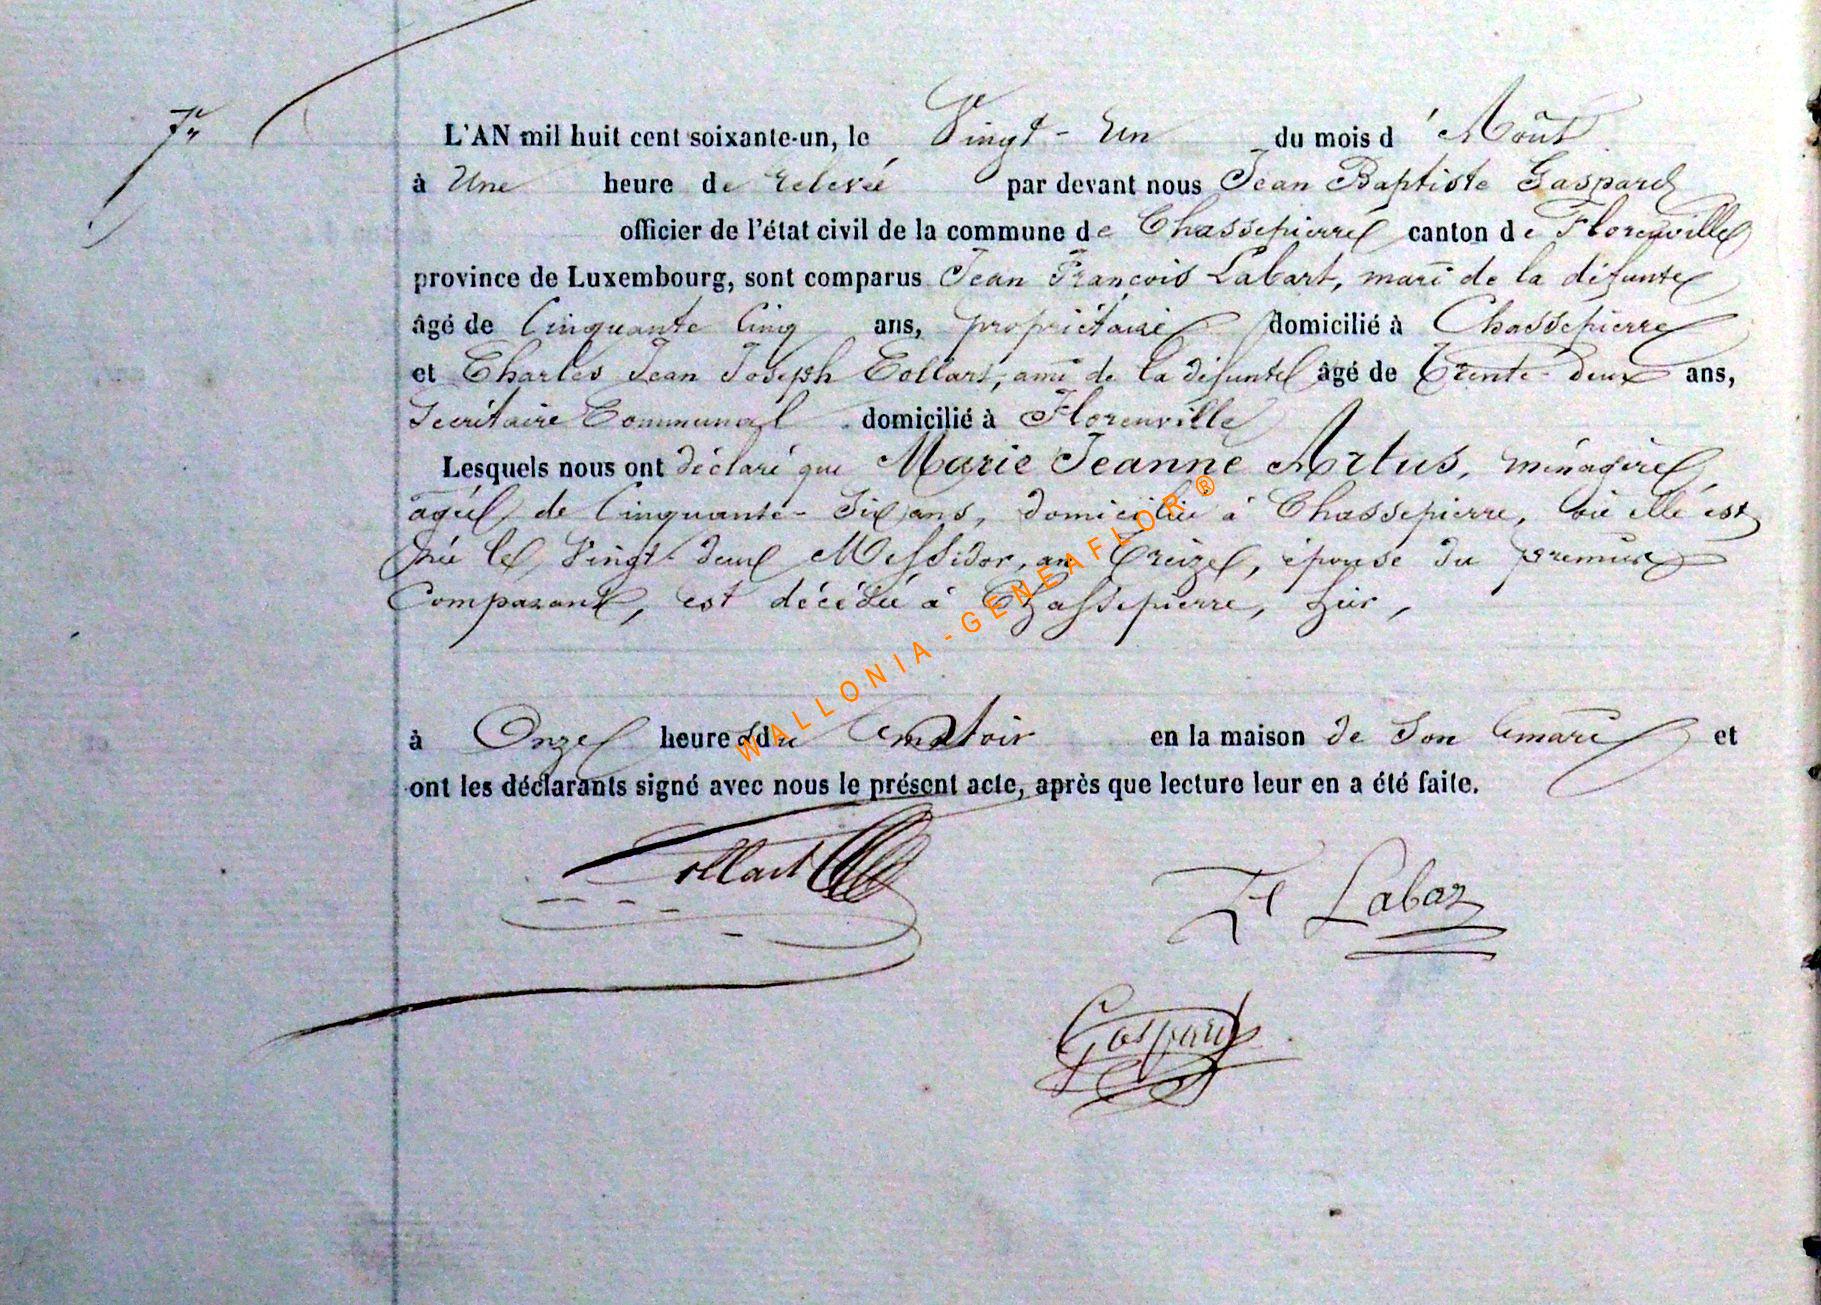 7.
L'AN mil huit cent soixante-un, le Vingt-Un du mois d'Août
à Une heure de relevée par devant nous Jean Baptiste Gaspard
officier de l'état civil de la commune de Chassepierre canton de Florenville
province de Luxembourg, sont comparus Jean François Labart, mari de la défunte
âgé de Cinquante Cinq ans, propriétaire domicilié à Chassepierre
et Charles Jean Joseph Collart, ami de la défunte âgé de Trente-deux ans,
Secrétaire Communal domicilié à Florenville
Lesquels nous ont déclaré que Marie Jeanne Artus, ménagère
agée de Cinquante-Six ans, domiciliée à Chassepierre, où elle est
née le Vingt-deux Messidor, an Treize, épouse du premier
Comparant, est décédée à Chassepierre, hier,
à Onze heures du soir en la maison de Son mari et
ont les déclarants signé avec nous le présent acte, après que lecture leur en a été faite.
Collart
Labar
Gaspard
WALLONIA - GENEAFLOR ®